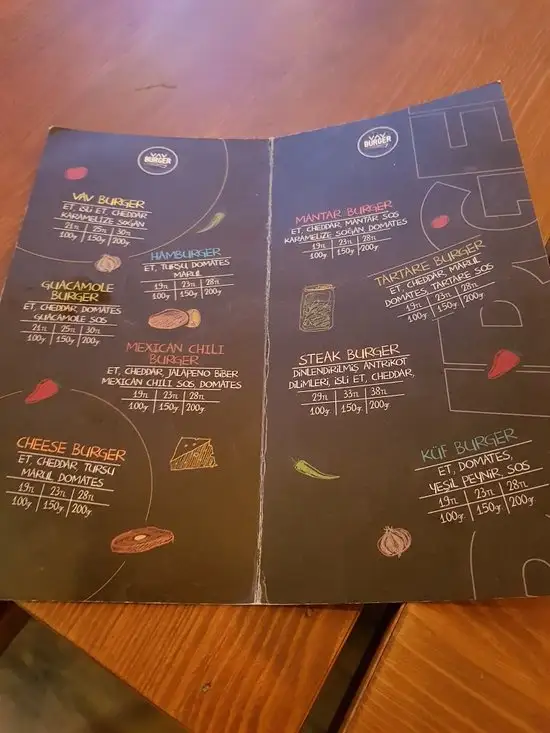 VAV
BURGER
VAV BURGER
ET, İSLİ ET, CHEDDAR
KARAMELİZE SOĞAN
21TL | 25TL | 30TL
100g. | 150g. | 200g.
HAMBURGER
ET, TURŞU, DOMATES
MARUL
19TL | 23TL | 28TL
100g. | 150g. | 200g.
GUACAMOLE
BURGER
ET, CHEDDAR, DOMATES
GUACAMOLE SOS
21TL | 25TL | 30TL
100g. | 150g. | 200g.
MEXICAN CHILI
BURGER
ET, CHEDDAR, JALAPENO BİBER
MEXICAN CHILI SOS, DOMATES
19TL | 23TL | 28TL
100g. | 150g. | 200g.
CHEESE BURGER
ET, CHEDDAR, TURŞU
MARUL DOMATES
19TL | 23TL | 28TL
100g. | 150g. | 200g.
VAV
BURGER
MANTAR BURGER
ET, CHEDDAR, MANTAR SOS
KARAMELİZE SOĞAN, DOMATES
19TL | 23TL | 28TL
100g. | 150g. | 200g.
TARTARE BURGER
ET, CHEDDAR, MARUL
DOMATES, TARTARE SOS
19TL | 23TL | 28TL
100g. | 150g. | 200g.
STEAK BURGER
DİNLENDİRİLMİŞ ANTRİKOT
DİLİMLERİ, İSLİ ET, CHEDDAR,
29TL | 33TL | 38TL
100g. | 150g. | 200g.
KÜF BURGER
ET, DOMATES,
YEŞİL PEYNİR, SOS
19TL | 23TL | 28TL
100g. | 150g. | 200g.